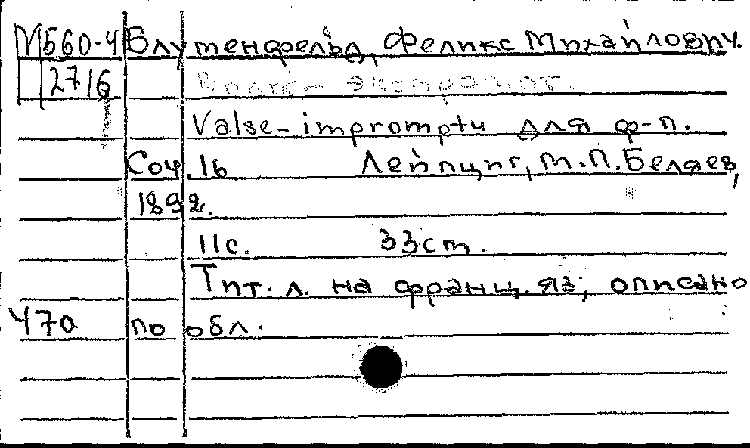 М560-4 Блуменфельд, Феликс Михайлович.
2716 Вальс-экспромт.
Valse-impromptu для ф-п.
Соч. 16 Лейпциг, М.П.Беляев,
1892.
11с. 33см.
Тит. л. на франц. яз, описано
Ч70 по обл.